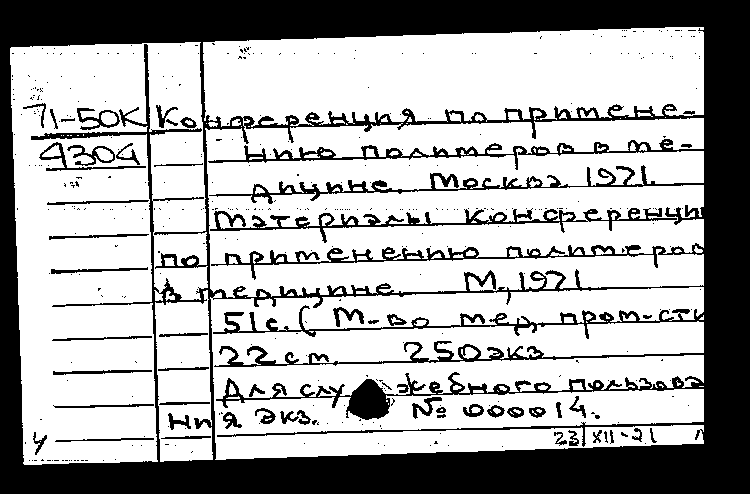 71-50К Конференция по примене-
4304 нию полимеров в ме-
дицине. Москва 1971.
Материалы конференци
по применению полимеров
в медицине. М., 1971.
51с. (М-во мед. пром-сти
22 см. 250 экз.
Для служебного пользова
ния экз. № 000014.
23/XII-21